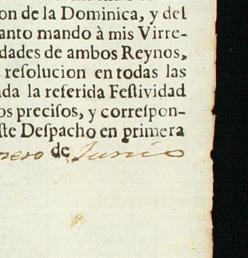 on de la Dominica, y del
anto mandò à mis Virre-
dades de ambos Reynos,
resolucion en todas las
da la referida Festividad
os precisos, y correspon-
ste Despacho en primera
nero de Junio